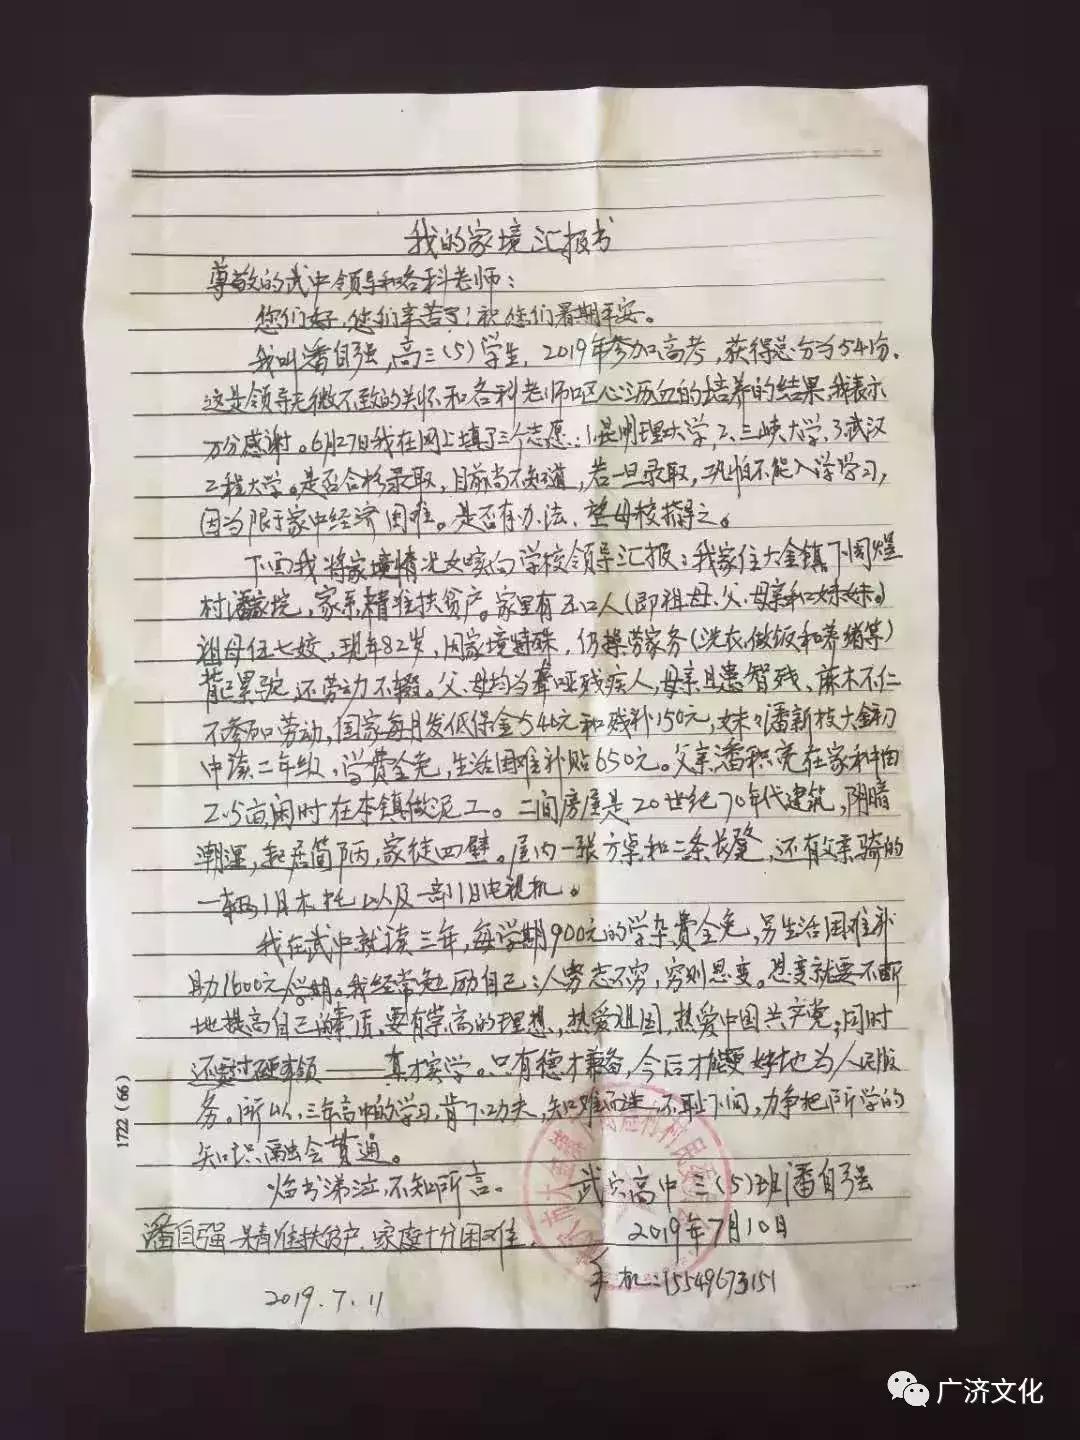 我的家境汇报书
尊敬的武中领导和各科老师:
您们好,您们辛苦了!祝您们暑期平安。
我叫潘自强,高三(5)学生,2019年参加高考,获得总分为541分,
这是领导无微不致的关怀和各科老师呕心沥血的培养的结果,我表示
万分感谢。6月27日我在网上填了三个志愿:1.昆明理工大学,2、三峡大学,3.武汉
工程大学。是否合格录取,目前尚不知道,若一旦录取,恐怕不能入学学习,
因为限于家中经济困难。是否有办法,望母校指导之。
下面我将家境情况如实向学校领导汇报:我家住大金镇下周煜
村潘家垸,家系精准扶贫户。家里有五口人(即祖母、父、母亲和妹妹。
祖母任七姣,现年82岁,因家境特殊,仍操劳家务(洗衣、做饭和养猪等)
背已累驼还劳动不辍。父、母均为聋哑残疾人,母亲且患智残、麻木不仁
不参加劳动,国家每月发低保金540元和残补150元,妹妹潘新枝大金初
中读二年级,学费全免,生活困难补贴650元。父亲潘积亮在家种田
2.5亩,闲时在本镇做泥工。二间房屋是20世纪70年代建筑,阴暗
潮湿,起居简陋,家徒四壁。屋内一张方桌和二条长凳,还有父亲骑的
一辆旧木托以及一部旧电视机。
我在武中就读三年,每学期900元的学杂费全免,另生活困难补
助1600元/学期。我经常勉励自己:人穷志不穷,穷则思变。思变就要不断
地提高自己的素质,要有崇高的理想,热爱祖国,热爱中国共产党;同时
还要过硬本领——真才实学。只有德才兼备,今后才能更好地为人民服
务。所以,三年高中的学习,肯下功夫,知难而进,不耻下问,力争把所学的
知识融会贯通。
临书涕泣,不知所言。 武穴高中三(5)班潘自强
2019年7月10日
潘自强是精准扶贫户,家庭十分困难.
手机:15549673151
2019.7.11
1722(66)
广济文化